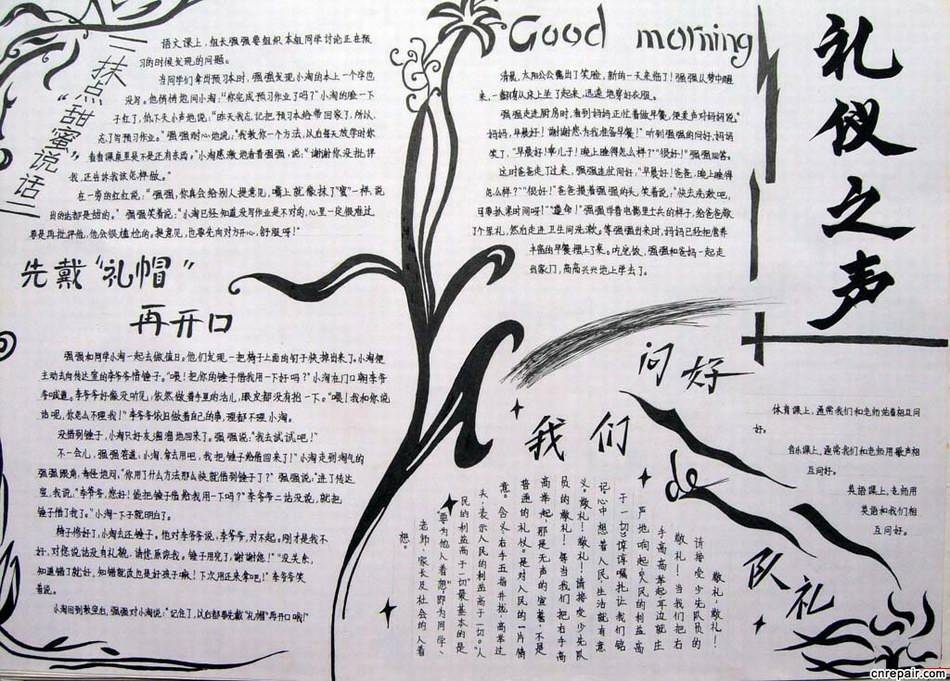 礼仪之声
一抹点"甜蜜"说话一
语文课上，组长强强要组织本组同学讨论正在预
习的时候发现的问题。
当同学们拿出预习本时，强强发现小海的本上一个字也
没写。他悄悄地问小海："你完成预习作业了吗？"小海的脸一下
子红了，低下头小声地说："昨天我忘记把预习本给带回家了，所以，
忘了写预习作业。"强强耐心地说："我教你一个方法，从白每天放学时你
看看课桌里是不是还有东西。"小海感激地看着强强，说："谢谢你没批评
我，还告诉我该怎样做。"
在一旁的红红说："强强，你真会给别人提意见，嘴上就像抹了"蜜"一样，说
出的话都是甜的。"强强笑着说："小海已经知道没写作业是不对的，心里一定很难过，
要是再批评他，他会很尴尬的。提意见，也要先向对方开心，舒服呀！"
Good morning
清晨，太阳公公露出了笑脸，新的一天来临了！强强从梦中醒
来，一翻身从床上坐了起来，迅速地穿好衣服。
强强走进厨房时，看到妈妈正忙着做早餐，便柔声对妈妈说：
"妈妈，早晨好！谢谢您为我准备早餐！"听到强强的问好，妈妈
笑了，"早晨好！乖儿子！晚上睡得怎么样？""很好！"强强回答。
这时爸爸走了过来，强强连忙问好，"早晨好！爸爸，晚上睡得
怎么样？""很好！"爸爸摸着强强的头，笑着说："快去洗漱吧，
丰富的早餐摆上了桌。吃完饭，强强和爸妈一起走
出家门，高高兴兴地上学去了。
先戴"礼帽"
再开口
强强和同学小海一起去做值日。他们发现一把椅子上面的钉子快掉出来了。小海便
主动去向传达室的李爷爷借锤子。"喂！把你的锤子借我用一下好吗？"小海在门口朝李爷
爷喊道。李爷爷好像没听见，依然做着手里的活儿，眼皮都没有抬一下。"喂！我和你说
话呢，你怎么不理我！"李爷爷依旧做着自己的事，理都不理小海。
没借到锤子，小海只好灰溜溜地回来了。强强说："我去试试吧！"
不一会儿，强强答道：小海，拿去用吧，我把锤子给借回来了！"小海走到淘气的
强强跟前，奇怪地问，"你用了什么方法那么快就借到锤子了？"强强说，"进了传达
室，我说，'李爷爷，您好！能把锤子借给我用一下吗？'李爷爷二话没说，就把
锤子借了我了。"小海一下子就明白了。
椅子修好了，小海去还锤子。他对李爷爷说，李爷爷，对不起。刚才是我不
好，对您说话没有礼貌，请您原谅我。锤子用完了，谢谢您！""没关系，
知道错了就好，知错就改也是好孩子啊！下次用还来拿吧！"李爷爷笑
着说。
小海回到教室后，强强对小海说："记住了，以后都要先戴"礼帽"再开口哦！
问好
体育课上，通常我们和老师站着相互问
好。
音乐课上，通常我们和老师用歌声相
互问好。
英语课上，老师用
英语和我们相
互问好。
我们de队礼
敬礼！敬礼！
请接受少先队员的
敬礼！当我们把右
手高高举起耳边就庄
声地响起人民的利益高
于一切谆谆嘱托让我们铭
记心中想着人民生活就有意
义。敬礼！敬礼！请接受少先队
员的敬礼！每当我们把右手高
高举起，那是无声的宣誓，不是
普通的礼仪。是对人民的一片情
意。含义：右手五指并拢，高举过
头，表示人民的利益高于一切。"人
民的利益高于一切"最基本的是
要为他人着想，即为同学、
老师、家长及社会的人着
想。
cnrepair.com